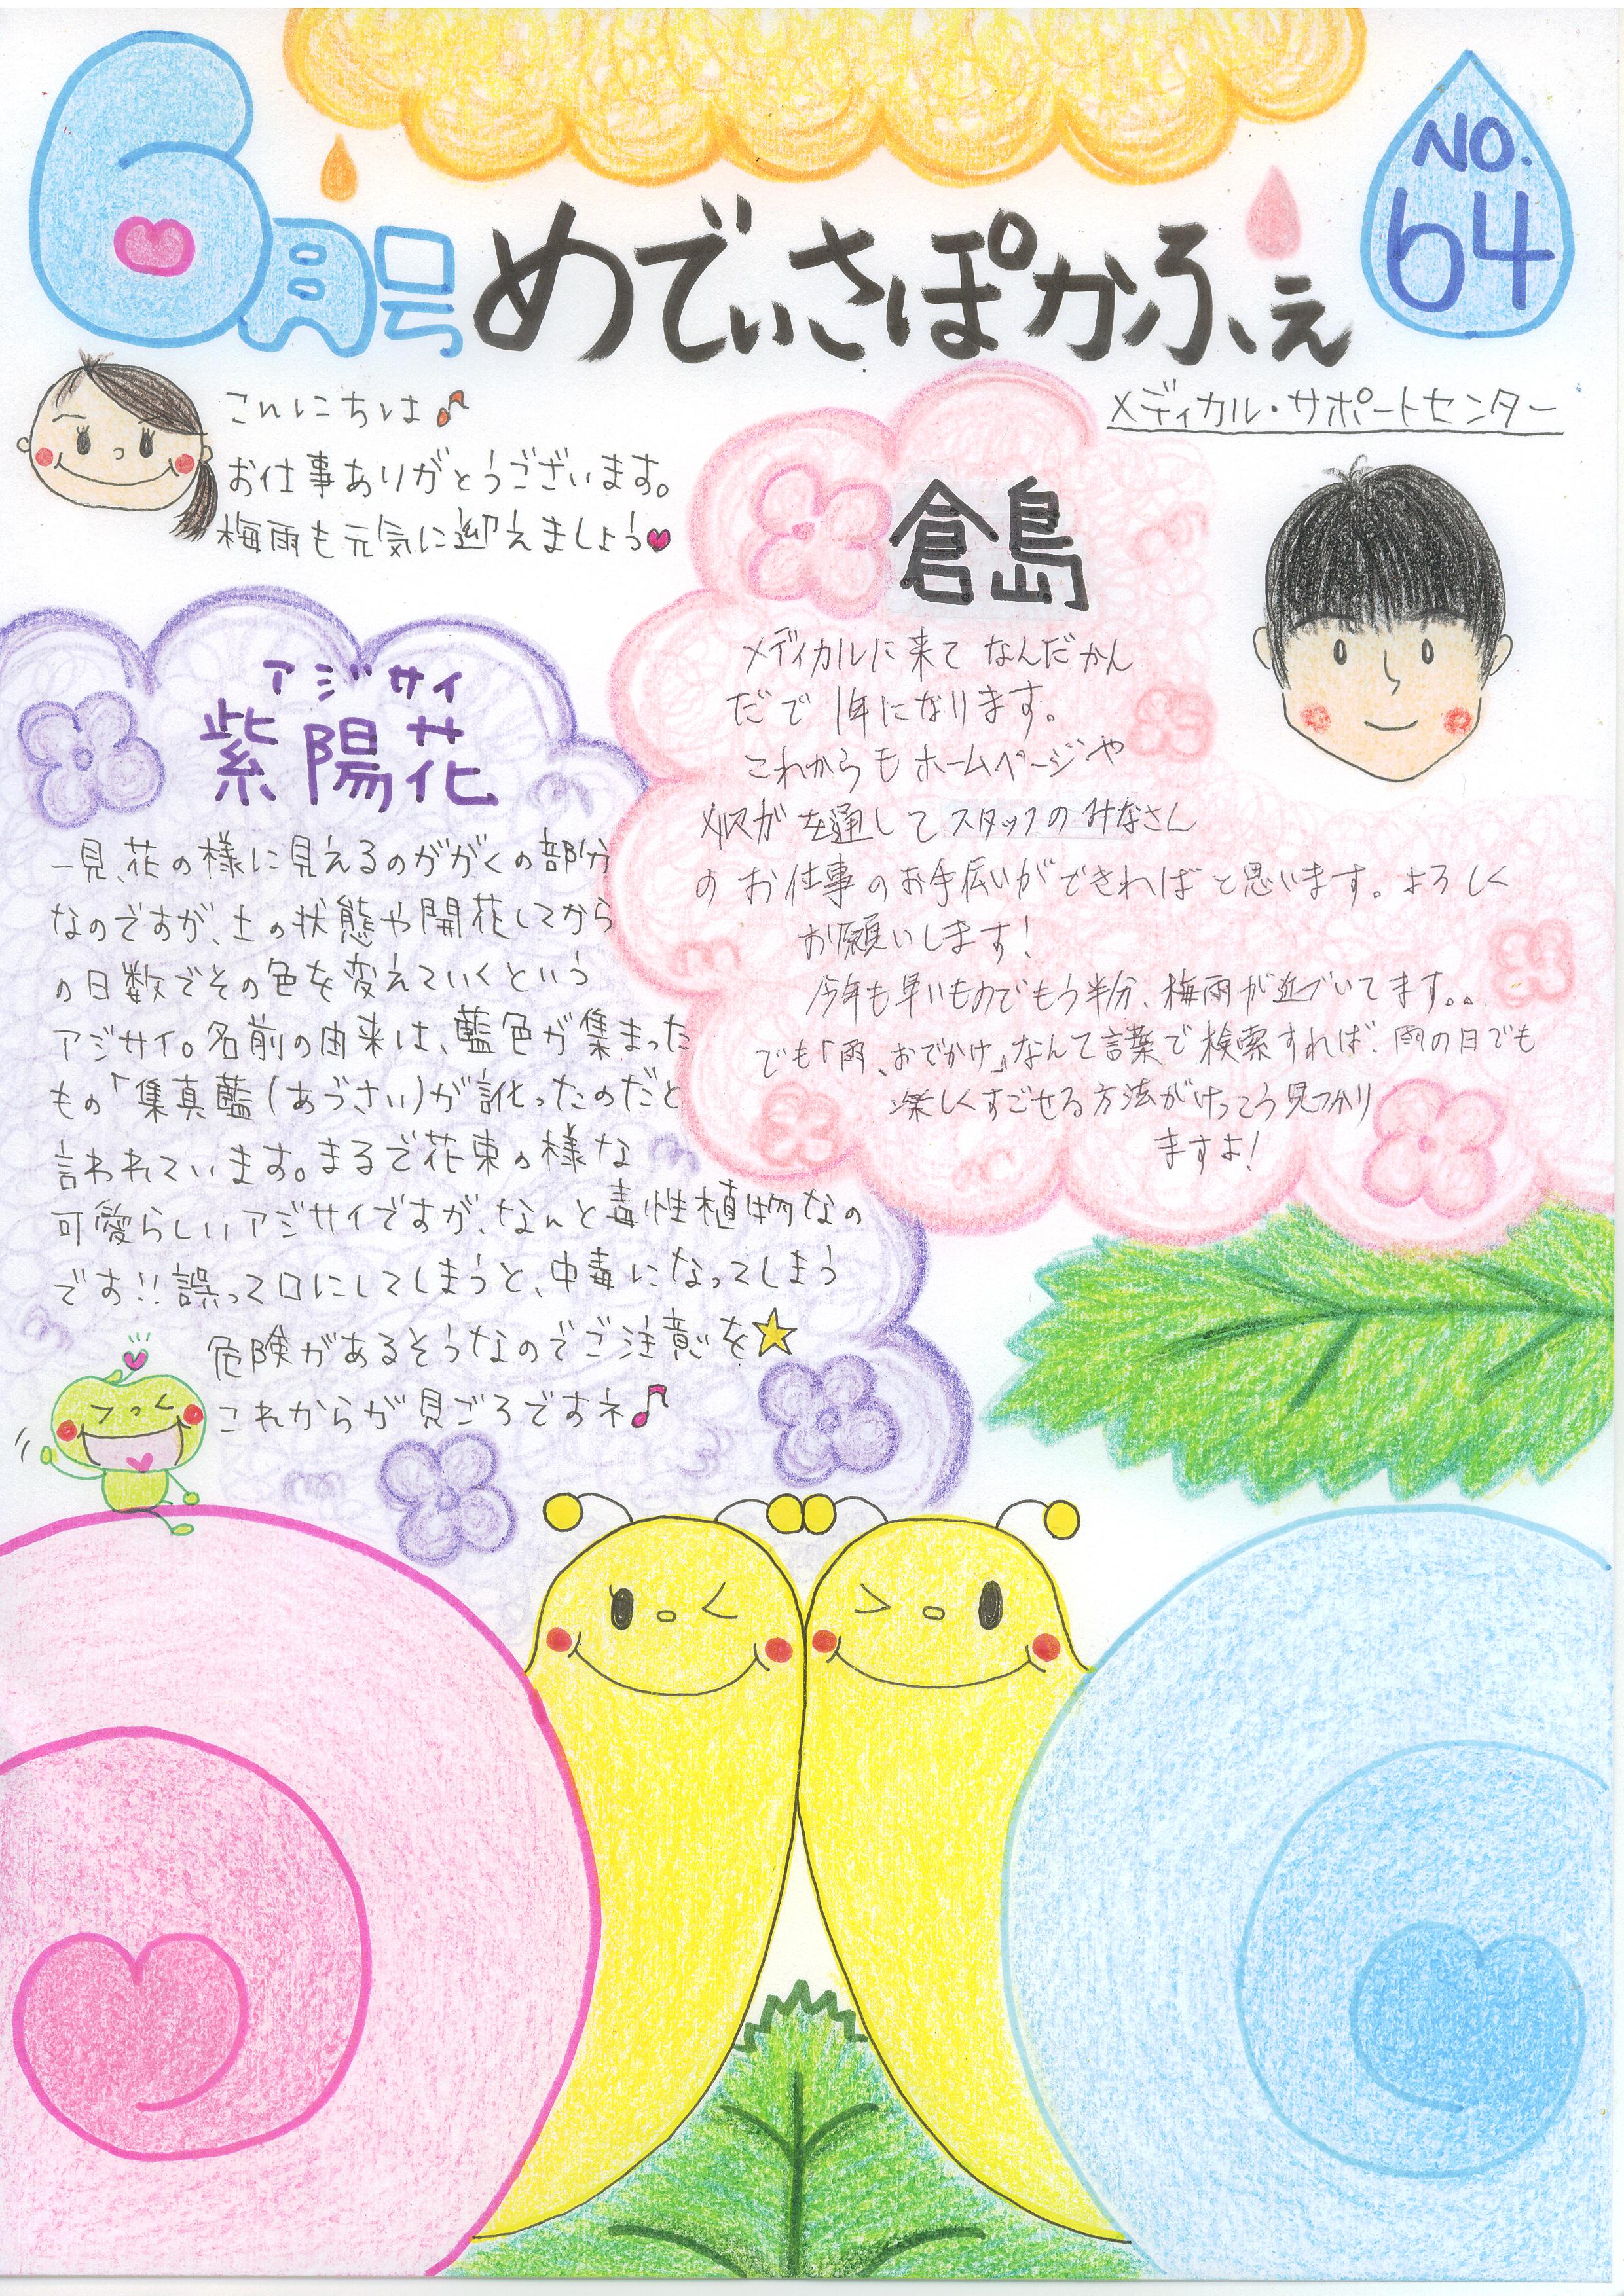 6月号
めでぃさぽかふぇ
NO.
64
メディカル・サポートセンター
こんにちは♪
お仕事ありがとうございます。
梅雨も元気に迎えましょう♥
倉島
メディカルに来て なんだかん
だで 1年になります。
これからも ホームページや
メルマガを通して スタッフの みなさん
の お仕事のお手伝いが できればと思います。よろしく
お願いします!
今年も早いものでもう半分、梅雨が近づいてます。。
でも「雨、おでかけ」なんて言葉で検索すれば、雨の日でも
楽しくすごせる方法がけっこう見つかり
ますよ!
アジサイ
紫陽花
一見、花の様に見えるのががくの部分
なのですが、土の状態や開花してから
の日数でその色を変えていくという
アジサイ。名前の由来は、藍色が集まった
もの「集真藍(あづさい)が訛ったのだと
言われています。まるで花束の様な
可愛らしいアジサイですが、なんと毒性植物なの
です!!誤って口にしてしまうと、中毒になってしまう
危険があるそうなのでご注意を★
これからが見ごろですネ♪